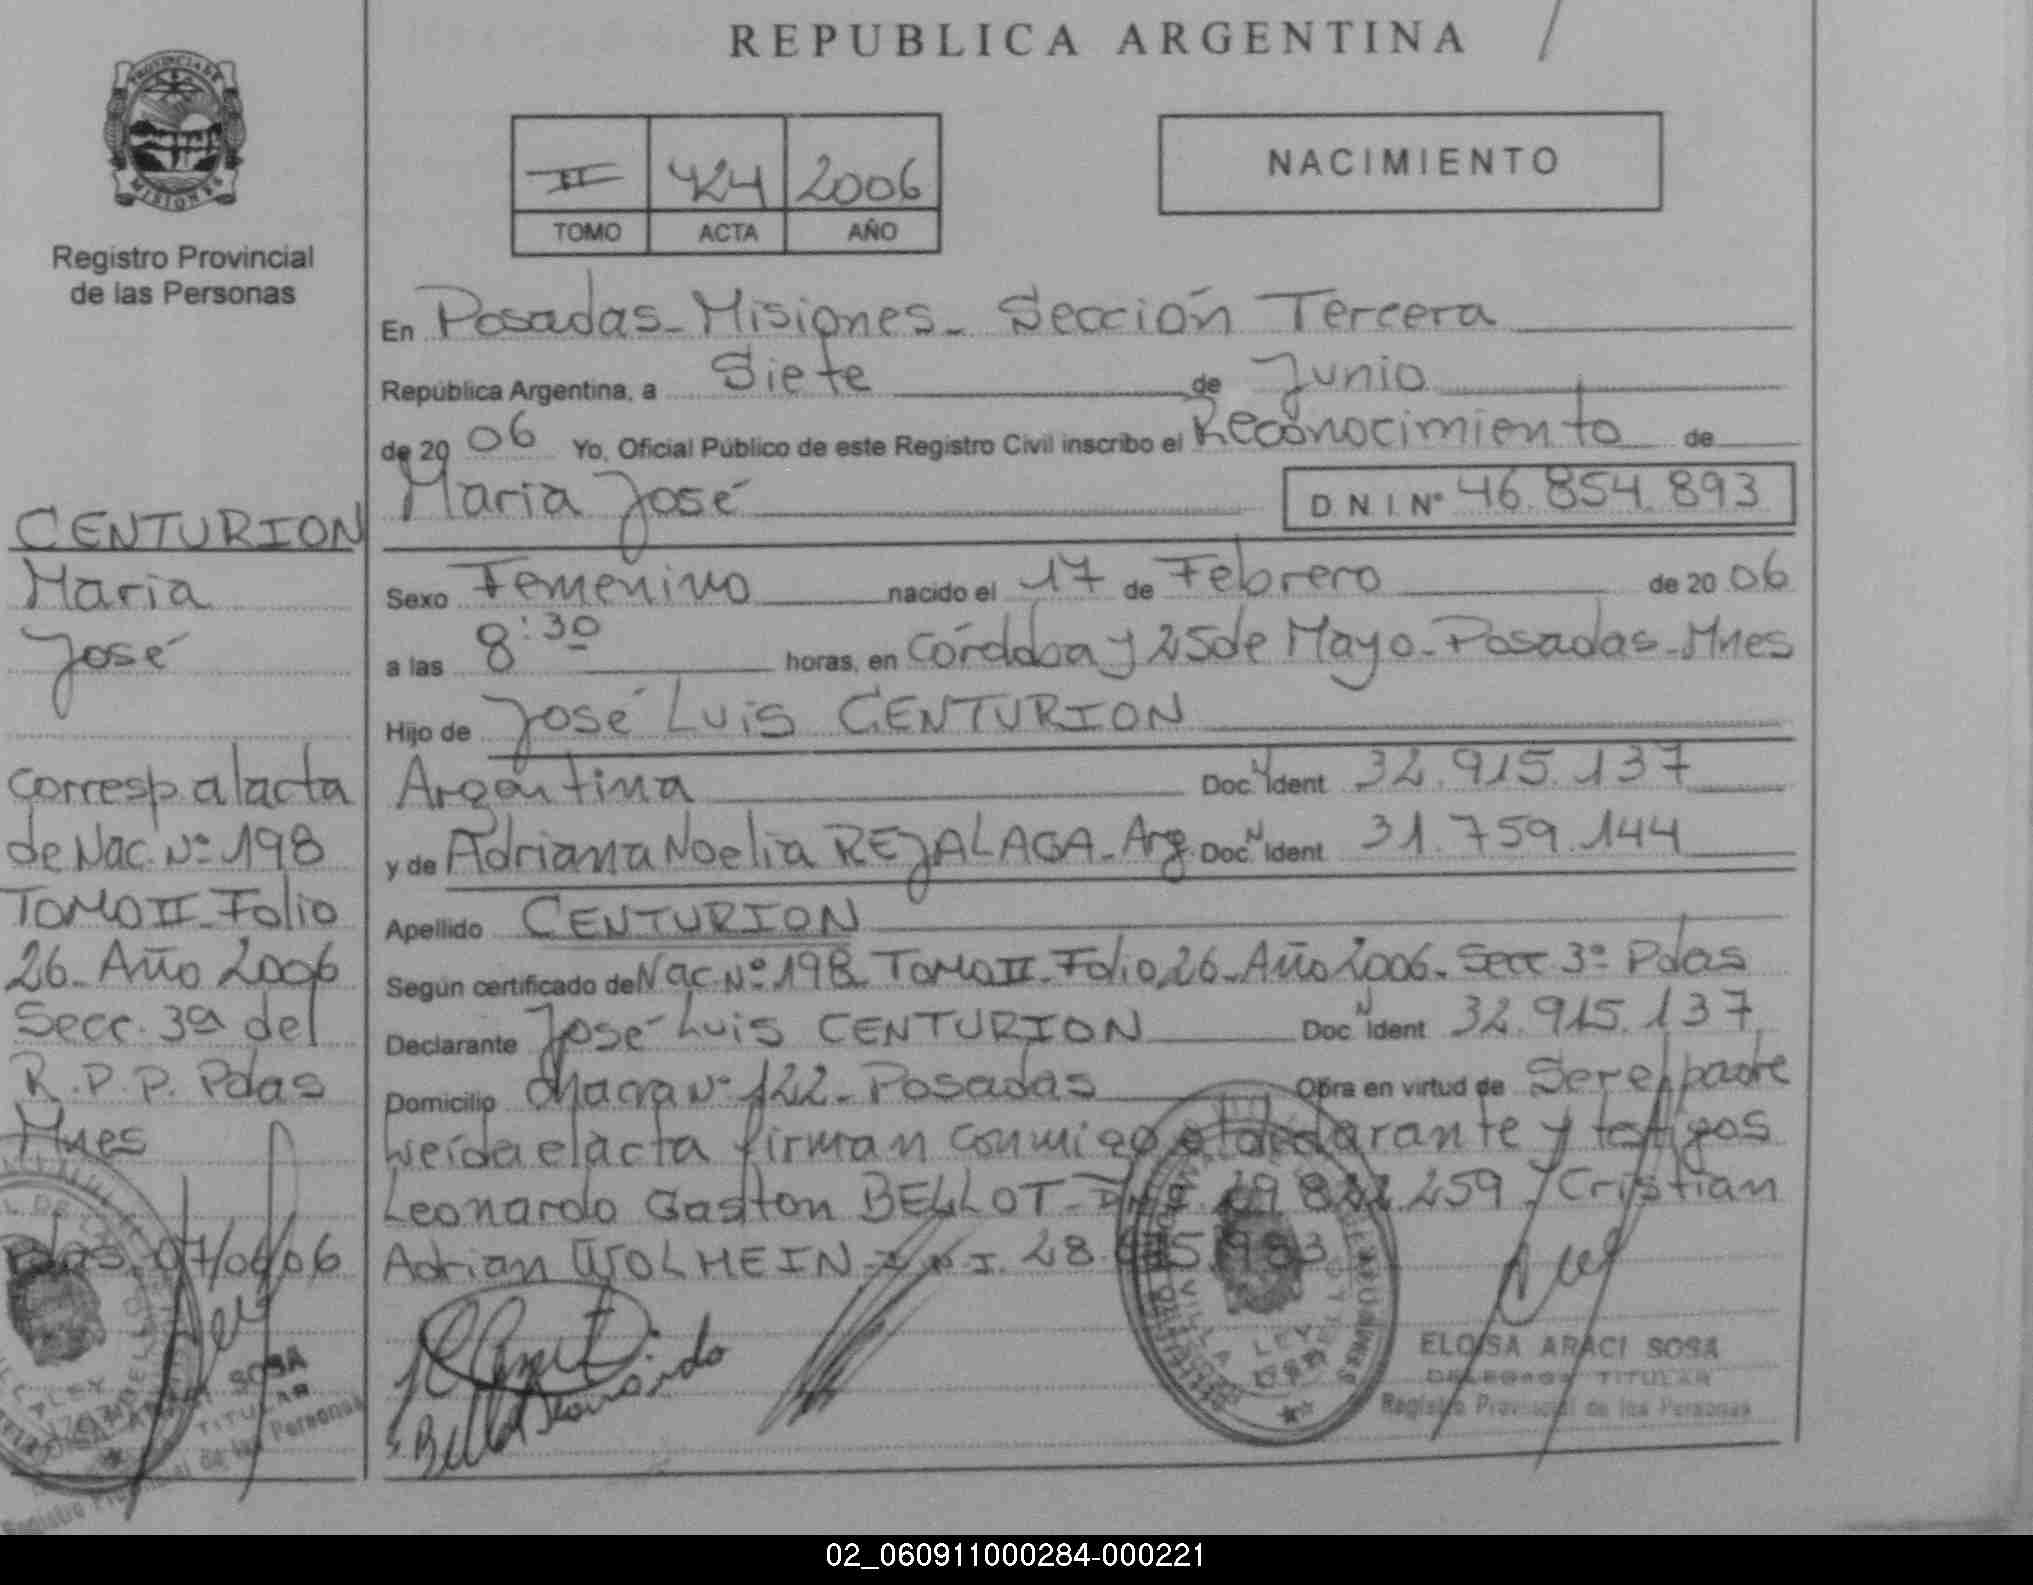 REPUBLICA ARGENTINA
PROVINCIA DE
MISIONES
Registro Provincial
de las Personas
II 424 2006
TOMO ACTA AÑO
NACIMIENTO
En Posadas - Misiones - Sección Tercera
República Argentina, a Siete de Junio
de 20 06 Yo, Oficial Público de este Registro Civil inscribo el Reconocimiento de
Maria José D N I Nº 46.854.893
Sexo Femenino nacido el 17 de Febrero de 20 06
a las 8:30 horas, en Córdoba y 25 de Mayo - Posadas - Mnes
Hijo de José Luis CENTURION
Argentina Doc. Ident 32.915.137
y de Adriana Noelia REJALAGA - Arg. Doc. N Ident 31.759.144
Apellido CENTURION
Según certificado de Nac. Nº 198 Tomo II - Folio 26 - Año 2006 - Secc 3º Pdas
Declarante José Luis CENTURION Doc N Ident 32.915.137
Domicilio chacra Nº 122 - Posadas Obra en virtud de Ser el padre
Leída el acta firman conmigo el declarante y testigos
Leonardo Gaston BELLOT - 259 Cristian
Adrian WOLHEIN D.N.I. 28.
CENTURION
Maria
José
Corresp. al acta
de Nac. Nº 198
TOMO II - Folio
26 - Año 2006
Secc. 3a del
R.P.P. Pdas
Mnes
Pdas 07/06/06
ELOISA ARACI SOSA
DELEGADA TITULAR
Registro Provincial de las Personas
SOSA
TITULAR
Registro Provincial de las Personas
02_060911000284-000221